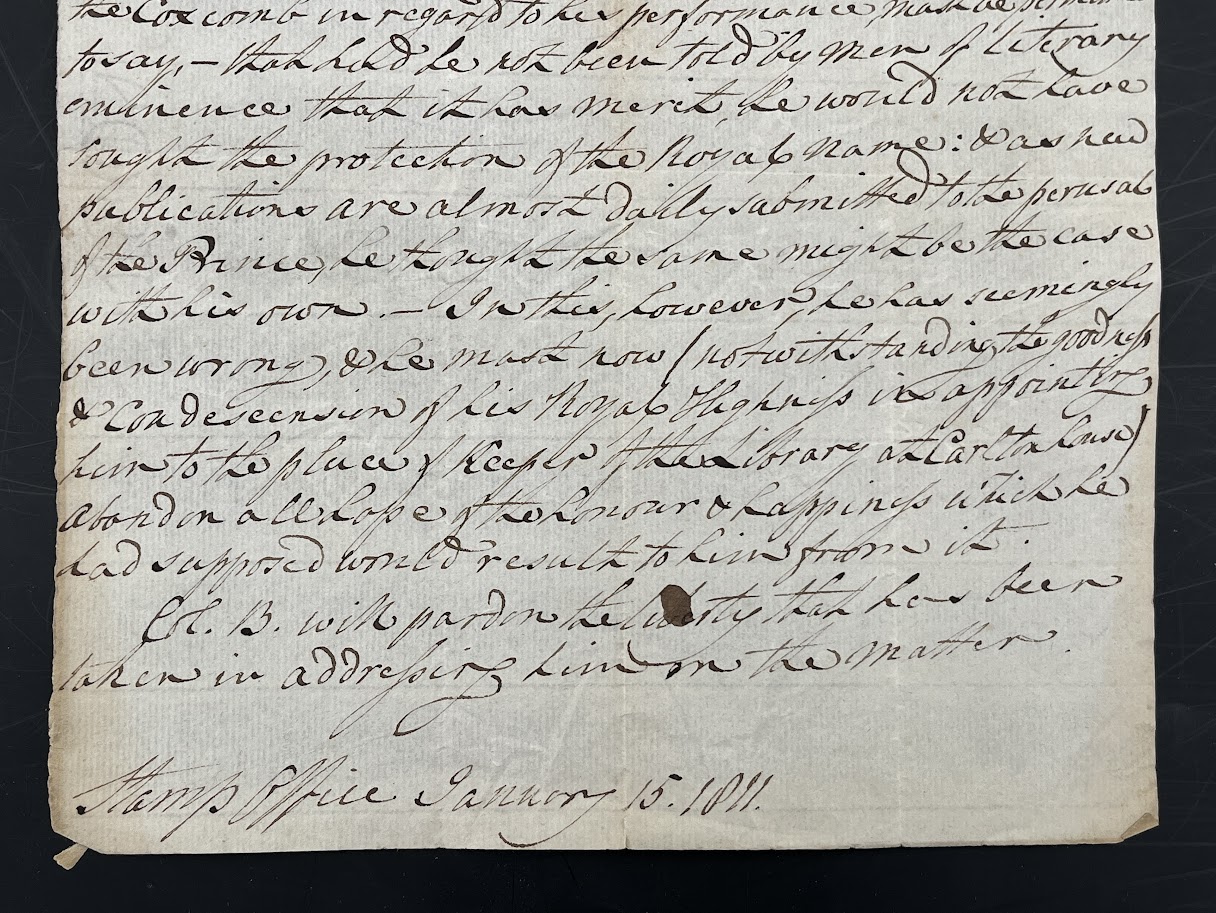 the Coxcomb in regard to his performance must be
to say, – that had he not been told by men of literary
eminence that it has merit, he would not have
sought the protection of the Royal name: & as new
publications are almost daily submitted to the perusal
of the Prince, he thought the same might be the case
with his own. – In this, however, he has seemingly
been wrong, & he must now (notwithstanding the goodness
& Condescension of his Royal Highness in appointing
him to the place of Keeper of the Library at Carlton house)
abandon all hope of the honour & happiness which he
had supposed would result to him from it.
Col. B. will pardon the liberty that has been
taken in addressing him on the matter.
Stamp Office January 15. 1811.